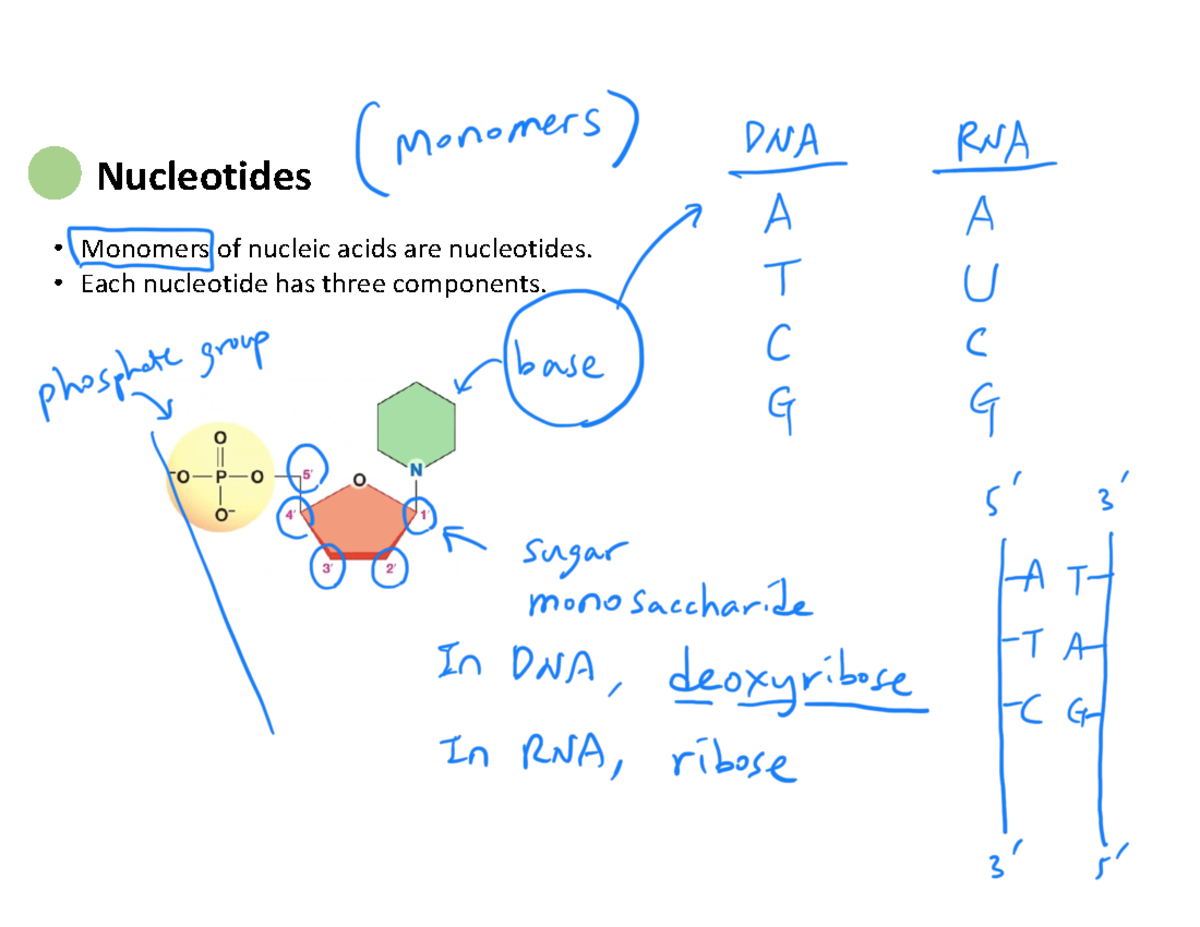 (Monomers)
Nucleotides
• Monomers of nucleic acids are nucleotides.
• Each nucleotide has three components.
DNA RNA
A A
T U
C C
G G
phosphate group
base
O
⁻O—P—O
O⁻
5'
4'
3'
2'
1'
O
N
sugar
monosaccharide
In DNA, deoxyribose
In RNA, ribose
5' 3'
A T
T A
C G
3' 5'